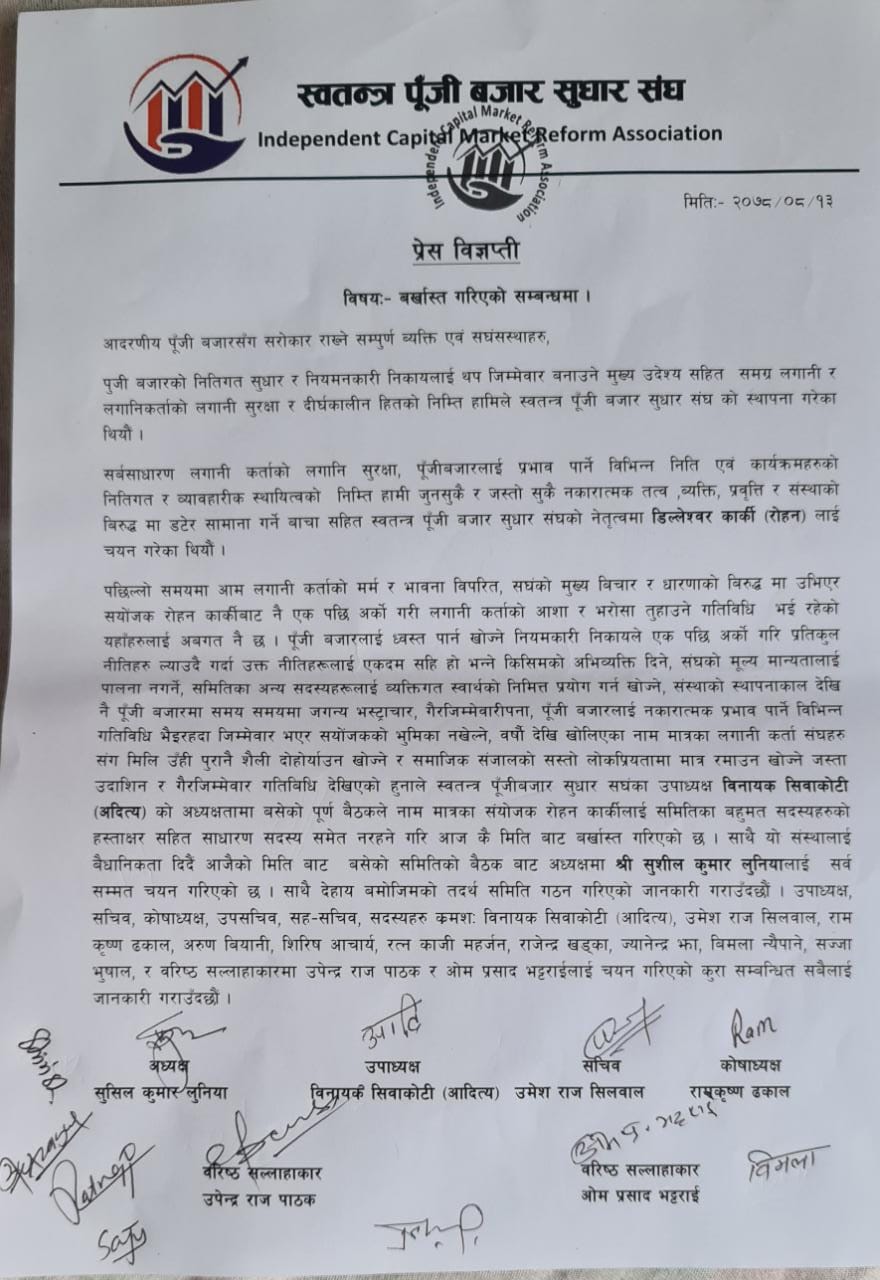 स्वतन्त्र पूँजी बजार सुधार संघ
Independent Capital Market Reform Association
Independent Capital Market Reform Association
मितिः- २०७८/०८/१३
प्रेस विज्ञप्ती
विषयः- बर्खास्त गरिएको सम्बन्धमा ।
आदरणीय पूँजी बजारसँग सरोकार राख्ने सम्पुर्ण ब्यक्ति एवं सघंसस्थाहरु,
पुजी बजारको नितिगत सुधार र नियमनकारी निकायलाई थप जिम्मेवार बनाउने मुख्य उदेश्य सहित समग्र लगानी र
लगानिकर्ताको लगानी सुरक्षा र दीर्घकालीन हितको निम्ति हामिले स्वतन्त्र पूँजी बजार सुधार संघ को स्थापना गरेका
थियौं ।
सर्बसाधारण लगानी कर्ताको लगानि सुरक्षा, पूँजीबजारलाई प्रभाव पार्ने विभिन्न निति एवं कार्यक्रमहरुको
नितिगत र व्यावहारीक स्थायित्वको निम्ति हामी जुनसुकै र जस्तो सुकै नकारात्मक तत्व ,ब्यक्ति, प्रवृत्ति र संस्थाको
बिरुद्ध मा डटेर सामाना गर्ने बाचा सहित स्वतन्त्र पूँजी बजार सुधार संघको नेतृत्वमा डिल्लेश्वर कार्की (रोहन) लाई
चयन गरेका थियौं ।
पछिल्लो समयमा आम लगानी कर्ताको मर्म र भावना विपरित, सघंको मुख्य बिचार र धारणाको बिरुद्ध मा उभिएर
सयोंजक रोहन कार्कीबाट नै एक पछि अर्को गरी लगानी कर्ताको आशा र भरोसा तुहाउने गतिविधि भई रहेको
यहाँहरुलाई अबगत नै छ । पूँजी बजारलाई ध्वस्त पार्न खोज्ने नियमकारी निकायले एक पछि अर्को गरि प्रतिकुल
नीतिहरु ल्याउदै गर्दा उक्त नीतिहरूलाई एकदम सहि हो भन्ने किसिमको अभिव्यक्ति दिने, संघको मूल्य मान्यतालाई
पालना नगर्ने, समितिका अन्य सदस्यहरूलाई ब्यक्तिगत स्वार्थको निमित्त प्रयोग गर्न खोज्ने, संस्थाको स्थापनाकाल देखि
नै पूँजी बजारमा समय समयमा जगन्य भस्ट्राचार, गैरजिम्मेवारीपना, पूँजी बजारलाई नकारात्मक प्रभाव पार्ने विभिन्न
गतिविधि भैइरहदा जिम्मेवार भएर सयोंजकको भुमिका नखेल्ने, वर्षौं देखि खोलिएका नाम मात्रका लगानी कर्ता संघहरु
संग मिलि उँही पुरानै शैली दोहोर्याउन खोज्ने र समाजिक संजालको सस्तो लोकप्रियतामा मात्र रमाउन खोज्ने जस्ता
उदाशिन र गैरजिम्मेवार गतिविधि देखिएको हुनाले स्वतन्त्र पूँजीबजार सुधार सघंका उपाध्यक्ष विनायक सिवाकोटी
(अदित्य) को अध्यक्षतामा बसेको पूर्ण बैठकले नाम मात्रका संयोजक रोहन कार्कीलाई समितिका बहुमत सदस्यहरुको
हस्ताक्षर सहित साधारण सदस्य समेत नरहने गरि आज कै मिति बाट बर्खास्त गरिएको छ । साथै यो संस्थालाई
बैधानिकता दिदैं आजैको मिति बाट बसेको समितिको बैठक बाट अध्यक्षमा श्री सुशील कुमार लुनियालाई सर्व
सम्मत चयन गरिएको छ । साथै देहाय बमोजिमको तदर्थ समिति गठन गरिएको जानकारी गराउँदछौं । उपाध्यक्ष,
सचिव, कोषाध्यक्ष, उपसचिव, सह-सचिव, सदस्यहरु क्रमशः विनायक सिवाकोटी (आदित्य), उमेश राज सिलवाल, राम
कृष्ण ढकाल, अरुण बियानी, शिरिष आचार्य, रत्न काजी महर्जन, राजेन्द्र खड्का, ज्यानेन्द्र झा, बिमला न्यौपाने, सज्जा
भुषाल, र वरिष्ठ सल्लाहाकारमा उपेन्द्र राज पाठक र ओम प्रसाद भट्टराईलाई चयन गरिएको कुरा सम्बन्धित सबैलाई
जानकारी गराउँदछौं ।
Ram
अध्यक्ष उपाध्यक्ष सचिव कोषाध्यक्ष
सुसिल कुमार लुनिया विनायक सिवाकोटी (आदित्य) उमेश राज सिलवाल रामकृष्ण ढकाल
वरिष्ठ सल्लाहाकार वरिष्ठ सल्लाहाकार बिमला
उपेन्द्र राज पाठक ओम प्रसाद भट्टराई